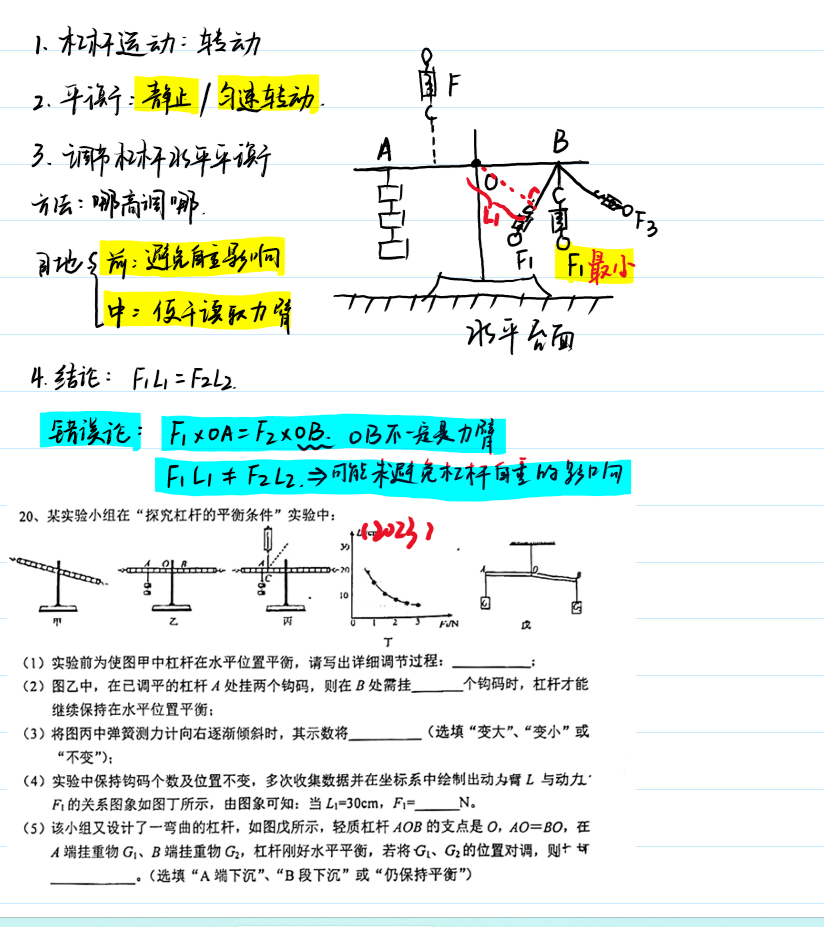 1、杠杆运动：转动
2、平衡：静止 / 匀速转动.
3、调节杠杆水平平衡
方法：哪高调哪.
目地 前：避免自重影响
中：便于读取力臂
F
A
B
O
L1
F1
F1最小
F3
水平台面
4.结论： F1L1=F2L2.
错误论： F1×OA=F2×OB. OB不一定是力臂
F1L1≠F2L2.⇒可能未避免杠杆自重的影响
20、某实验小组在“探究杠杆的平衡条件”实验中：
(2023)
A O B
A
C
30
20
10
0 1 2 3 F1/N
A O B
G G
甲 乙 丙 丁 戊
（1）实验前为使图甲中杠杆在水平位置平衡，请写出详细调节过程：；
（2）图乙中，在已调平的杠杆 A 处挂两个钩码，则在 B 处需挂______个钩码时，杠杆才能
继续保持在水平位置平衡；
（3）将图丙中弹簧测力计向右逐渐倾斜时，其示数将________（选填“变大”、“变小”或
“不变”）；
（4）实验中保持钩码个数及位置不变，多次收集数据并在坐标系中绘制出动力臂 L 与动力
F1的关系图象如图丁所示，由图象可知：当 L1=30cm，F1=_____N。
（5）该小组又设计了一弯曲的杠杆，如图戊所示，轻质杠杆 AOB 的支点是 O，AO＝BO，在
A 端挂重物 G1、B 端挂重物 G2，杠杆刚好水平平衡，若将 G1、G2的位置对调，则
__________。（选填“A 端下沉”、“B 段下沉”或“仍保持平衡”）